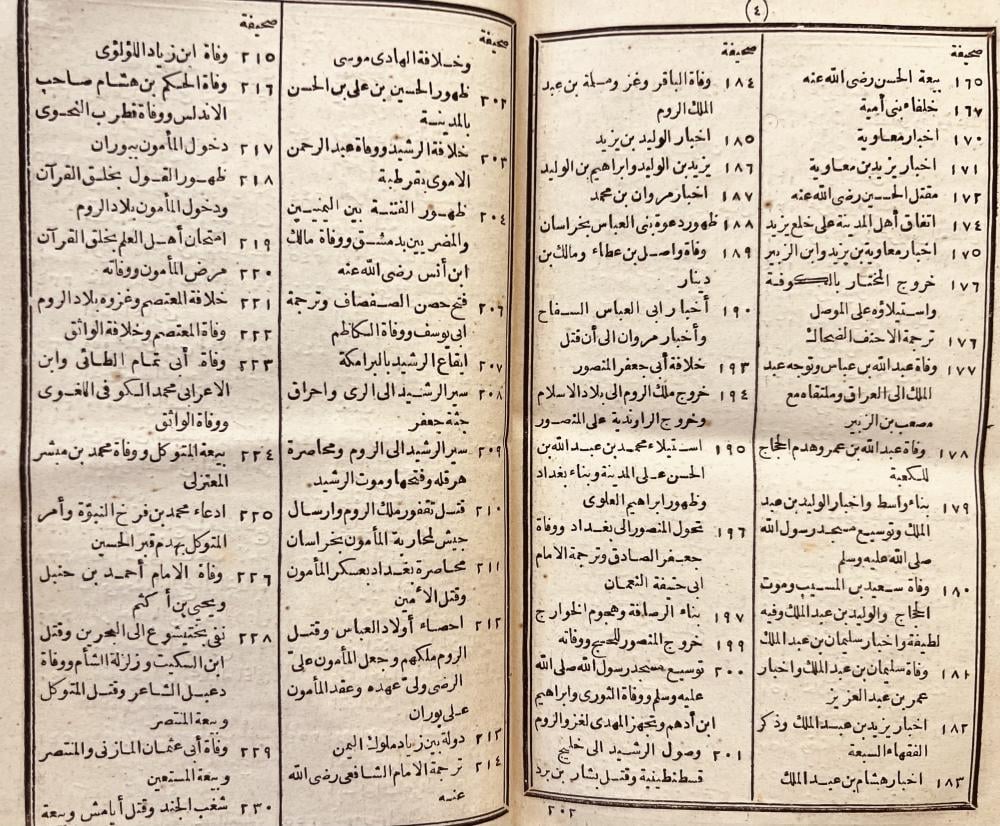 ٤
صحيفة
١٦٥ بيعة الحسن رضى الله عنه
١٦٧ خلفاء بنى أمية
١٧٠ اخبار معاوية
١٧١ اخبار يزيد بن معاوية
١٧٢ مقتل الحسين رضى الله عنه
١٧٤ اتفاق أهل المدينة على خلع يزيد
١٧٥ اخبار معاوية بن يزيد وابن الزبير
١٧٦ خروج المختار بالكوفة
واستيلاؤه على الموصل
١٧٦ ترجمة الاحنف الضحاك
١٧٧ وفاة عبد الله بن عباس وتوجه عبد
الملك الى العراق وملتقاه مع
مصعب بن الزبير
١٧٨ وفاة عبد الله بن عمر وهدم الحجاج
للكعبة
١٧٩ بناء واسط واخبار الوليد بن عبد
الملك وتوسيع مسجد رسول الله
صلى الله عليه وسلم
١٨٠ وفاة سعيد بن المسيب وموت
الحجاج والوليد بن عبد الملك وفيه
لطيفة واخبار سليمان بن عبد الملك
١٨١ وفاة سليمان بن عبد الملك واخبار
عمر بن عبد العزيز
١٨٢ اخبار يزيد بن عبد الملك وذكر
الفقهاء السبعة
١٨٣ اخبار هشام بن عبد الملك
صحيفة
١٨٤ وفاة الباقر وغزو مسلمة بن عبد
الملك الروم
١٨٥ اخبار الوليد بن يزيد
١٨٦ يزيد بن الوليد وابراهيم بن الوليد
١٨٧ اخبار مروان بن محمد
١٨٨ ظهور دعوة بنى العباس بخراسان
١٨٩ وفاة واصل بن عطاء ومالك بن
دينار
١٩٠ أخبار ابى العباس السفاح
وأخبار مروان الى أن قتل
١٩٣ خلافة أبى جعفر المنصور
١٩٤ خروج ملك الروم الى بلاد الاسلام
وخروج الراوندية على المنصور
١٩٥ استيلاء محمد بن عبد الله بن
الحسن على المدينة وبناء بغداد
وظهور ابراهيم العلوى
١٩٦ تحول المنصور الى بغداد ووفاة
جعفر الصادق وترجمة الامام
ابى حنيفة النعمان
١٩٧ بناء الرصافة وهجوم الخوارج
١٩٩ خروج المنصور للحج ووفاته
٢٠٠ توسيع مسجد رسول الله صلى الله
عليه وسلم ووفاة الثورى وابراهيم
ابن أدهم وتجهز المهدى لغزو الروم
٢٠١ وصول الرشيد الى خليج
قسطنطينية وقتل بشار بن برد
٢٠٢
صحيفة
وخلافة الهادى موسى
٢٠٢ ظهور الحسين بن على بن الحسن
بالمدينة
٢٠٣ خلافة الرشيد ووفاة عبد الرحمن
الاموى بقرطبة
٢٠٤ ظهور الفتنة بين اليمنيين
والمضريين بدمشق ووفاة مالك
ابن أنس رضى الله عنه
٢٠٦ فتح حصن الصفصاف وترجمة
ابى يوسف ووفاة الكاظم
٢٠٧ ايقاع الرشيد بالبرامكة
٢٠٨ سير الرشيد الى الرى واحراق
جثة جعفر
٢٠٩ سير الرشيد الى الروم ومحاصرة
هرقلة وفتحها وموت الرشيد
٢١٠ قتل تقفور ملك الروم وارسال
جيش لمحاربة المأمون بخراسان
٢١١ محاصرة بغداد بعسكر المأمون
وقتل الأمين
٢١٢ احصاء أولاد العباس وقتل
الروم ملكهم وجعل المأمون على
الرضى ولى عهده وعقد المأمون
على بوران
٢١٣ دولة بين زياد ملوك اليمن
٢١٤ ترجمة الامام الشافعى رضى الله
عنه
صحيفة
٢١٥ وفاة ابن زياد اللؤلؤى
٢١٦ وفاة الحكم بن هشام صاحب
الاندلس ووفاة قطرب النحوى
٢١٧ دخول المأمون ببوران
٢١٨ ظهور القول بخلق القرآن
ودخول المأمون بلاد الروم
٢١٩ امتحان أهل العلم بخلق القرآن
٢٢٠ مرض المأمون ووفاته
٢٢١ خلافة المعتصم وغزوه بلاد الروم
٢٢٢ وفاة المعتصم وخلافة الواثق
٢٢٣ وفاة أبى تمام الطائى وابن
الاعرابى محمد الكوفى اللغوى
ووفاة الواثق
٢٢٤ بيعة المتوكل ووفاة محمد بن مبشر
المعتزلى
٢٢٥ ادعاء محمد بن فرخ النبوة وأمر
المتوكل بهدم قبر الحسين
٢٢٦ وفاة الامام أحمد بن حنبل
ويحيى بن أكثم
٢٢٨ نفى بختيشوع الى البحرين وقتل
ابن السكيت وزلزلة الشأم ووفاة
دعبل الشاعر وقتل المتوكل
وبيعة المنتصر
٢٢٩ وفاة أبى عثمان المازنى والمنتصر
وبيعة المستعين
٢٣٠ شغب الجند وقتل أتامش وبيعة